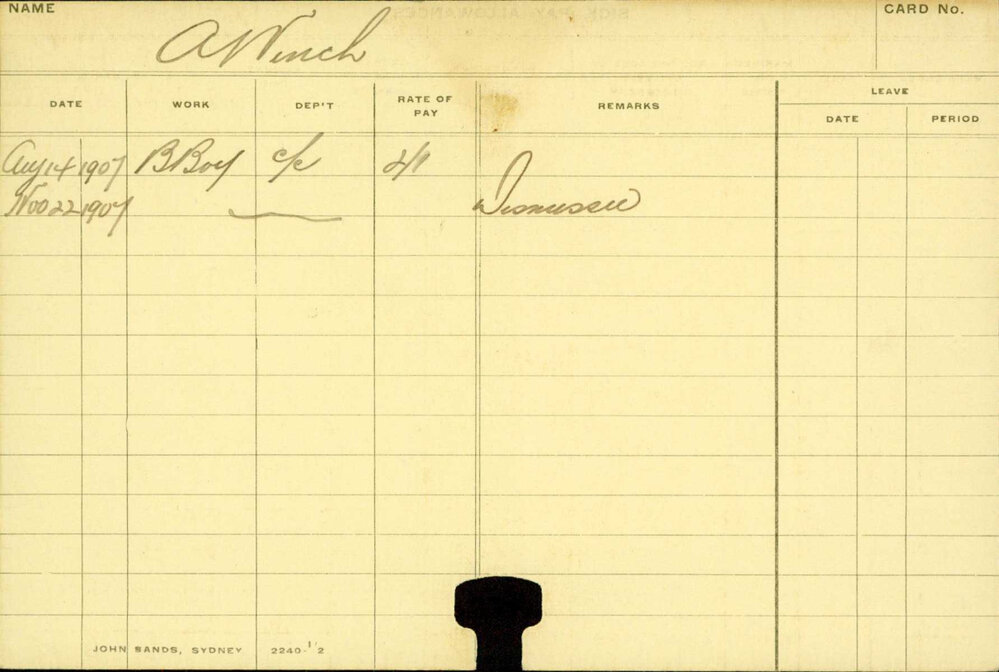 NAME
A Winch
CARD No.
DATE WORK DEP'T RATE OF PAY REMARKS LEAVE
DATE PERIOD
Aug 14 1907 B Boy c/c
Nov 22 1907 Dismissed
JOHN SANDS, SYDNEY 2240-1'2